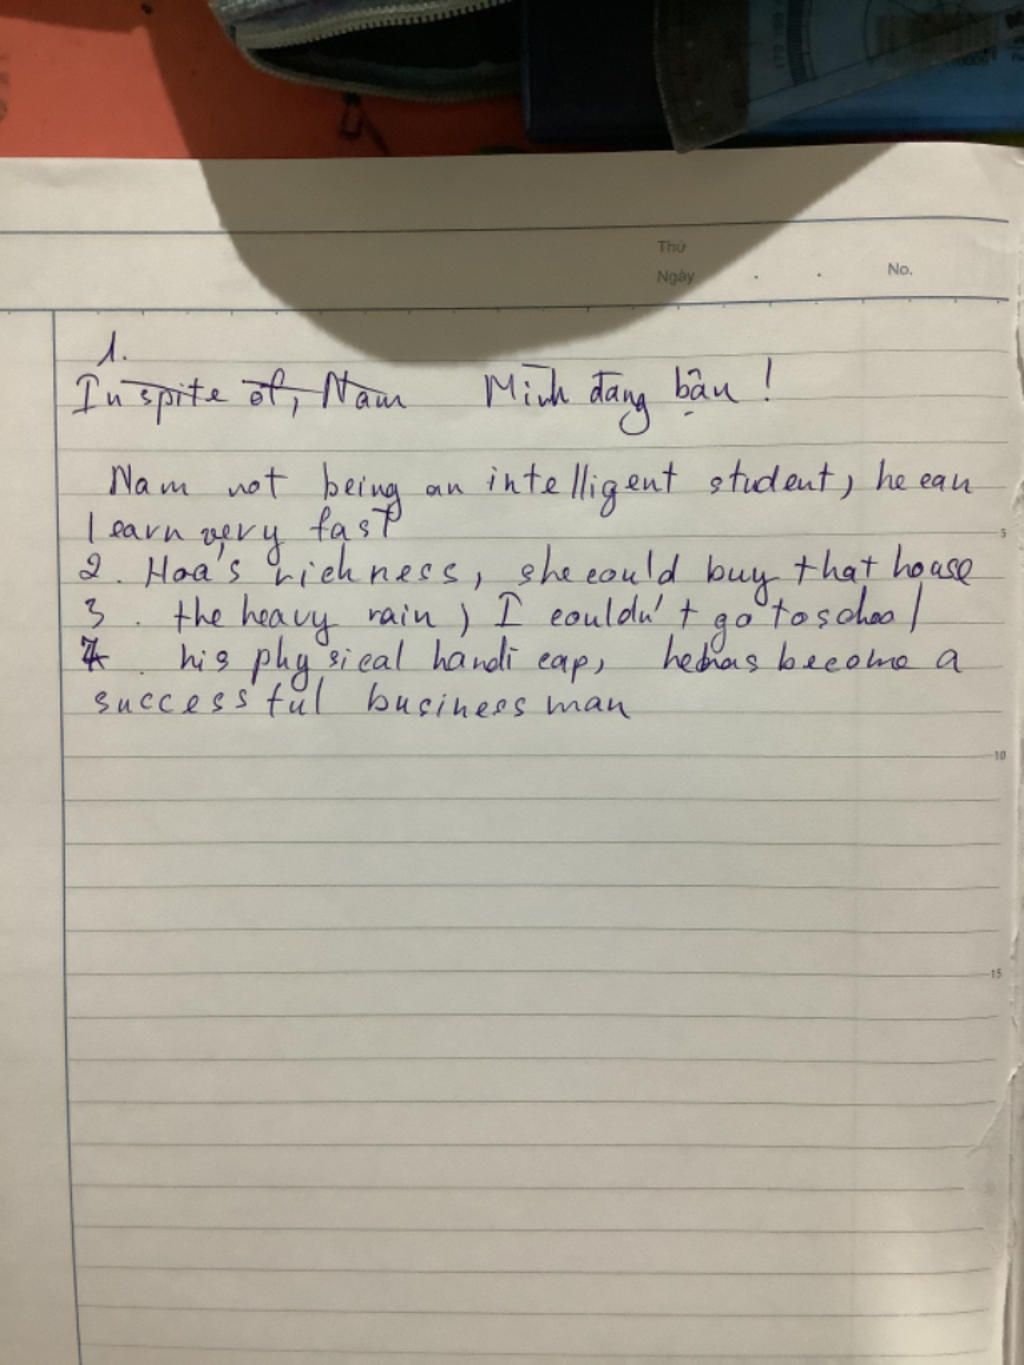 Thứ
Ngày . . No.
1.
In spite of, Nam Mình đang bận !
Nam not being an intelligent student, he can
learn very fast
5
2. Hoa's richness, she could buy that house
3. the heavy rain, I couldn't go to school
4. his physical handicap, he has become a
successful businessman
10
15